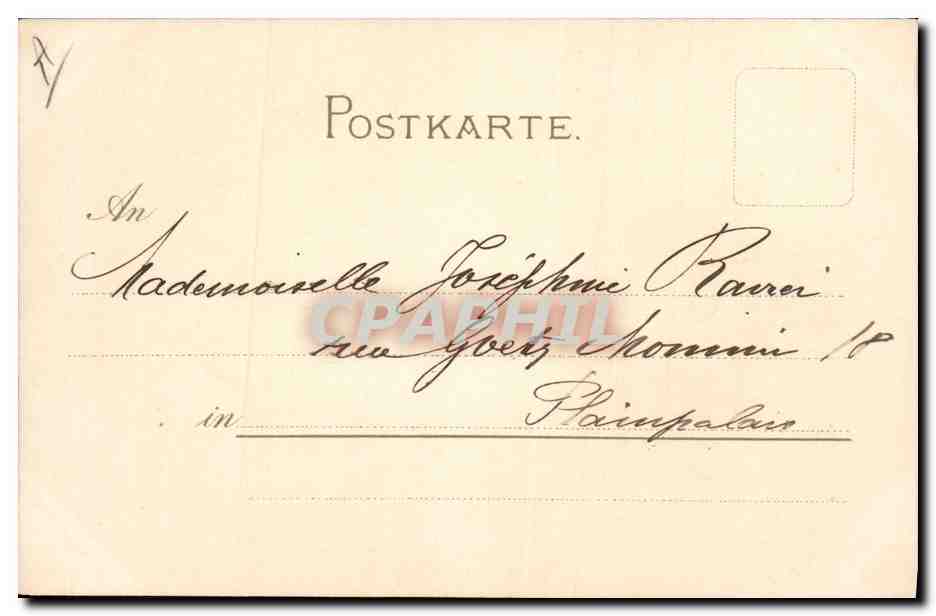 POSTKARTE.
An
Mademoiselle Joséphine
CPAPHIL
rue Goetz Monnin 18
in Plainpalais